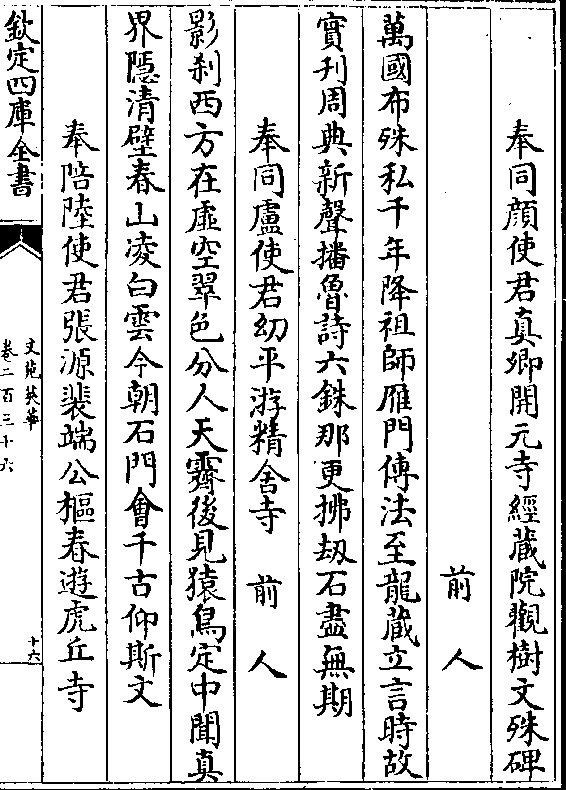 奉同顔使君真卿開元寺經蔵院觀樹文殊碑
前人
萬國布殊私千年降祖師雁門傳法至龍蔵立言時故
實刋周典新聲播魯詩六銖那更拂刼石盡無期
奉同盧使君幼平游精舍寺　前人
影刹西方在虛空翠色分人天霽後見猿鳥定中聞真
界隱清壁春山凌白雲今朝石門會千古仰斯文
奉陪陸使君張源裴端公樞春遊虎丘寺
欽定四庫全書
文苑英華
卷二百三十六
十六